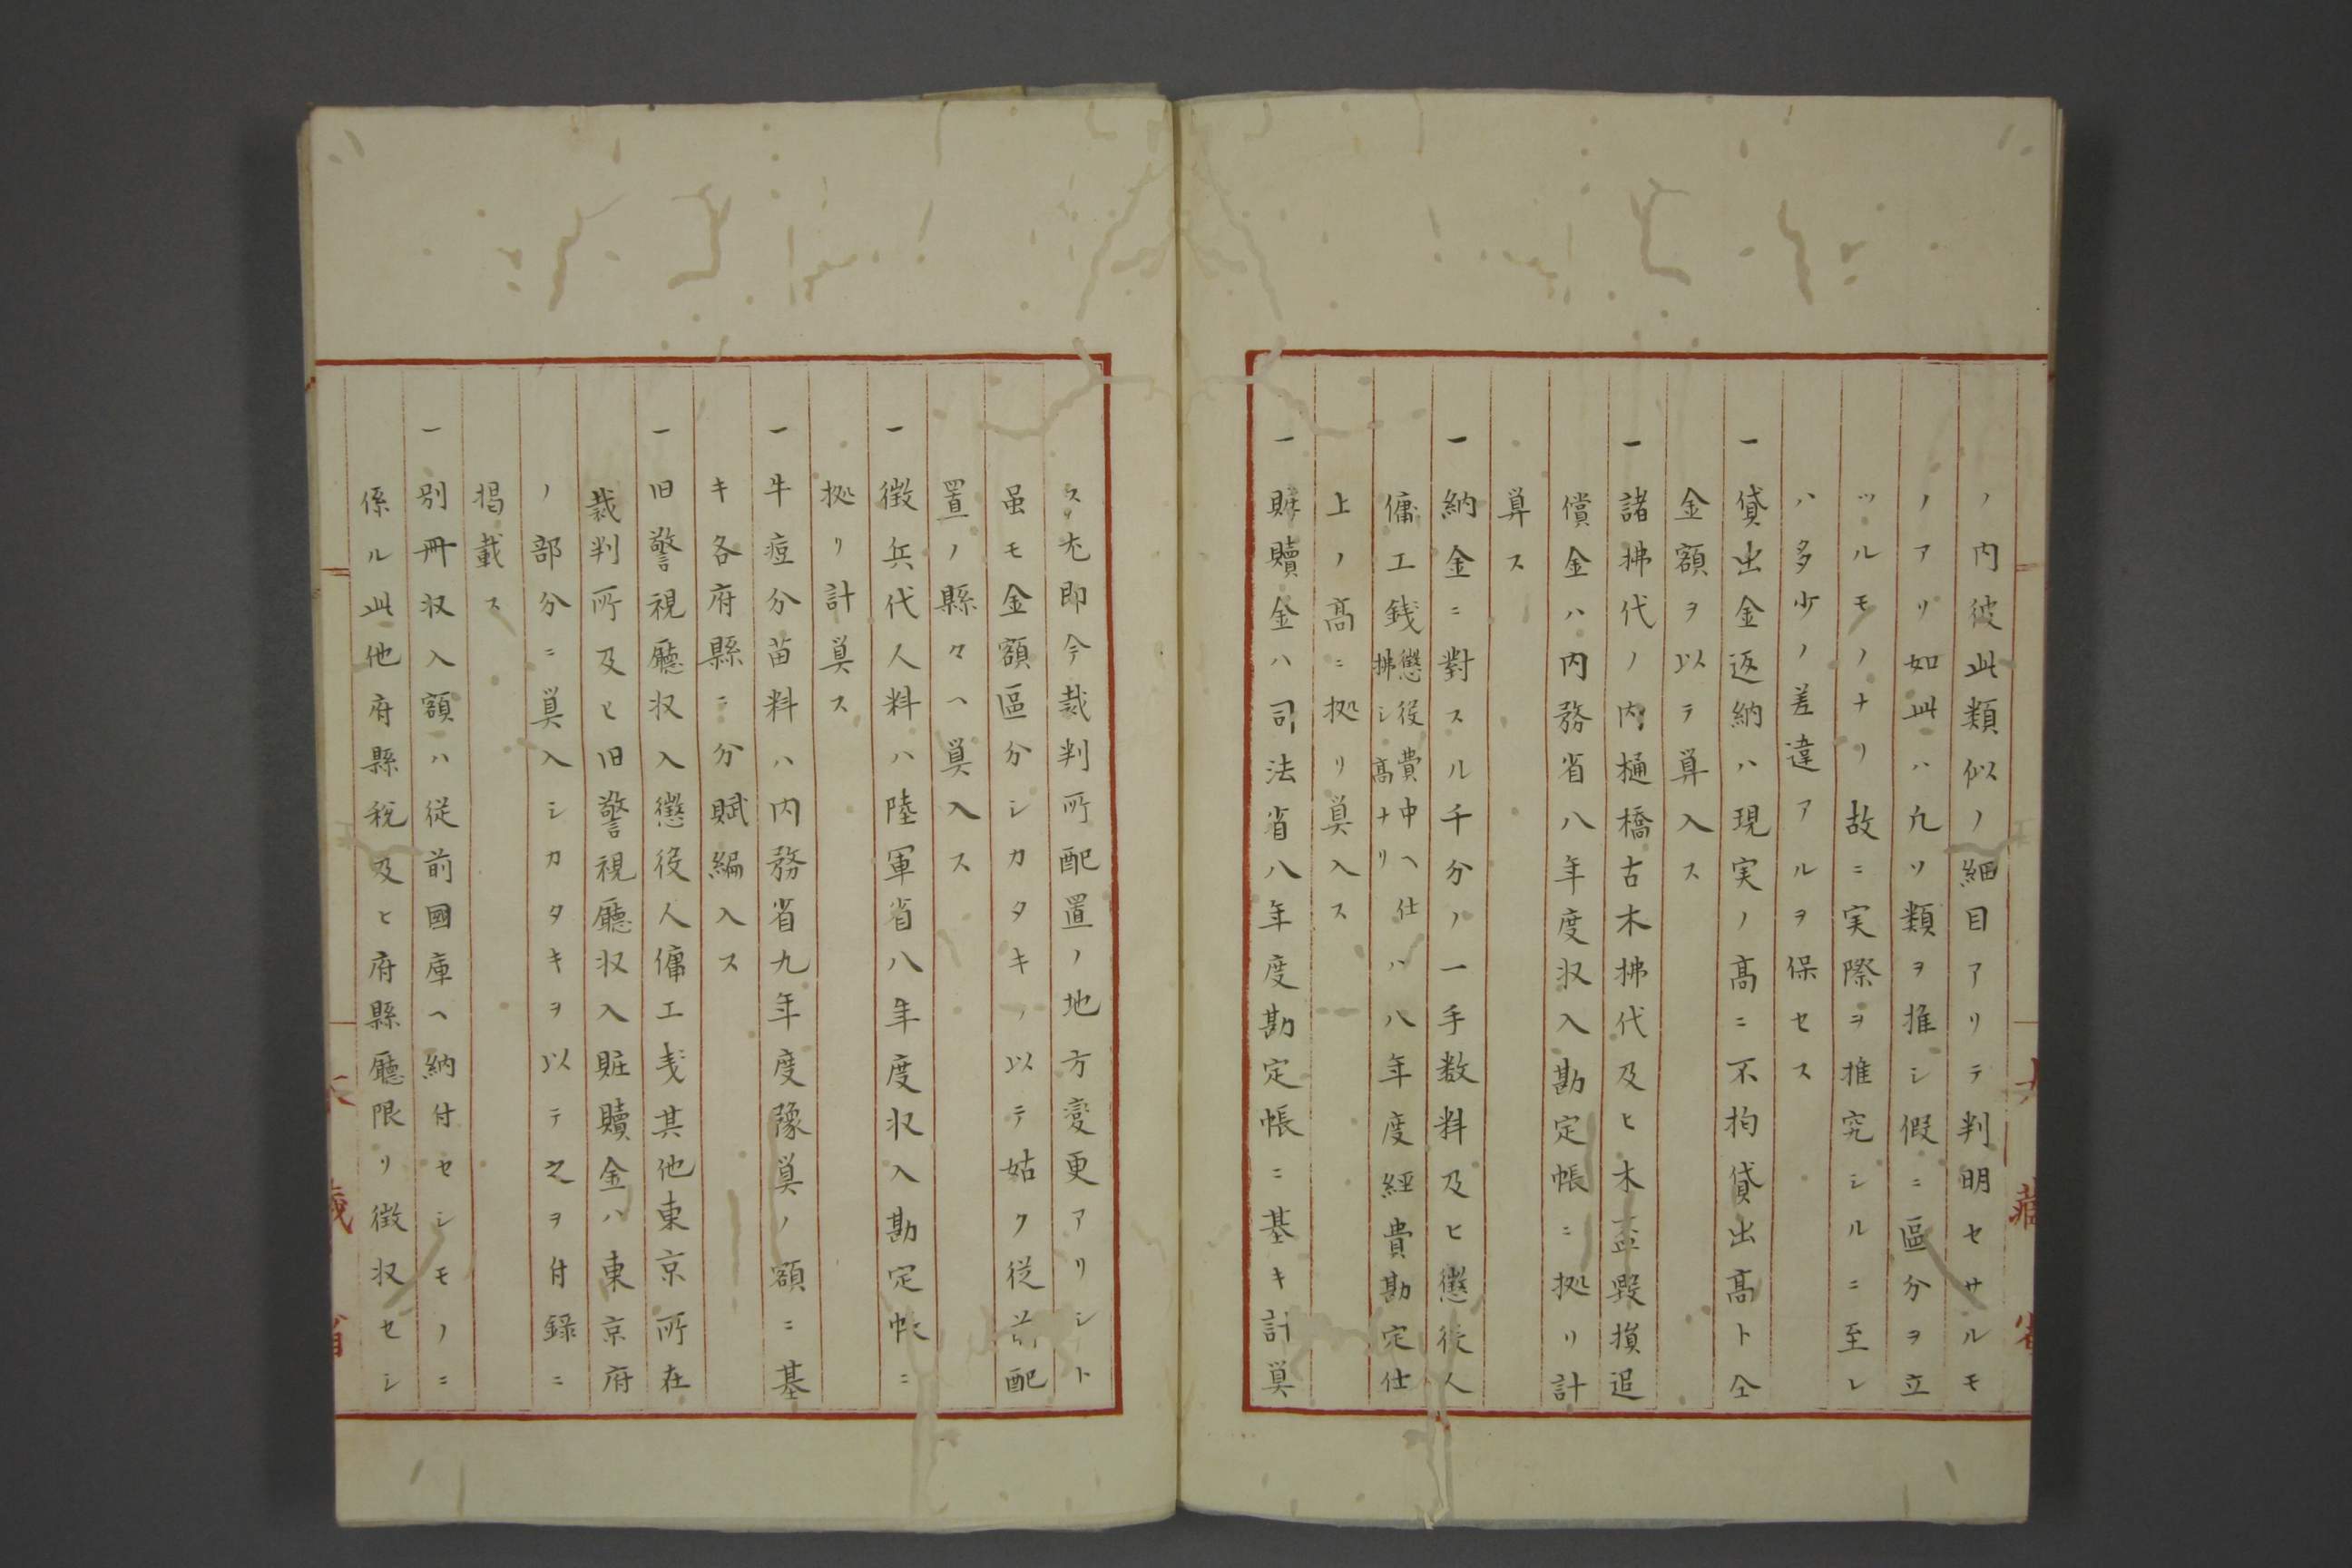 ノ内彼此類似ノ細目アリテ判明セサルモ
ノアリ如此ハ凢ソ類ヲ推シ假ニ區分ヲ立
ツルモノナリ故ニ実際ヲ推究シルニ至レ
ハ多少ノ差違アルヲ保セス
一貸出金返納ハ現実ノ髙ニ不拘貸出髙ト仝
金額ヲ以テ算入ス
一諸拂代ノ内樋橋古木拂代及ヒ木盃毀損追
償金ハ内務省八年度収入勘定帳ニ拠リ計
算ス
一納金ニ對スル千分ノ一手数料及ヒ懲役人
傭工銭懲役費中ヘ仕拂シ髙ナリハ八年度經費勘定仕
上ノ髙ニ拠リ算入ス
一賍贖金ハ司法省八年度勘定帳ニ基キ計算
ス尤即今裁判所配置ノ地方変更アリシト
虽モ金額區分シカタキヲ以テ姑ク従前配
置ノ縣々ヘ算入ス
一徴兵代人料ハ陸軍省八年度収入勘定帳ニ
拠リ計算ス
一牛痘分苗料ハ内務省九年度豫算ノ額ニ基
キ各府縣ニ分賦編入ス
一旧警視廳収入懲役人傭工戔其他東京所在
裁判所及ヒ旧警視廳収入賍贖金ハ東京府
ノ部分ニ算入シカタキヲ以テ之ヲ付録ニ
掲載ス
一別冊収入額ハ従前國庫ヘ納付セシモノニ
係ル此他府縣税及ヒ府縣廳限リ徴収セシ
大藏省